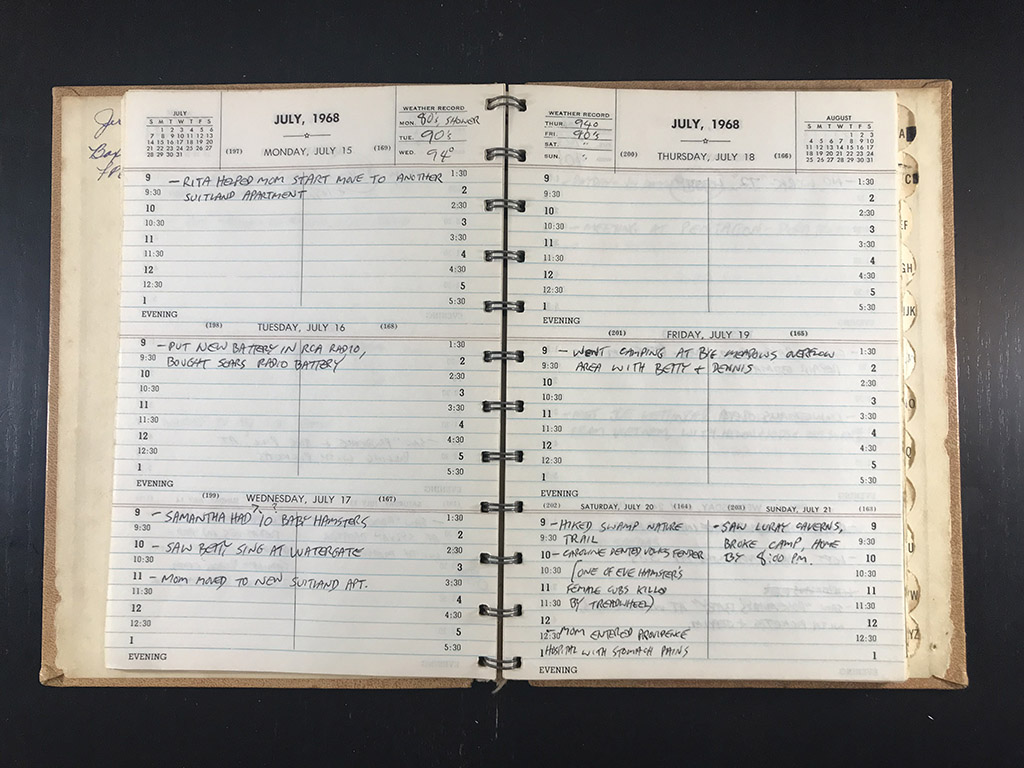 JULY
S M T W T F S
1 2 3 4 5 6
7 8 9 10 11 12 13
14 15 16 17 18 19 20
21 22 23 24 25 26 27
28 29 30 31
JULY, 1968
(197) MONDAY, JULY 15 (169)
WEATHER RECORD
MON. 80's SHOWER
TUE. 90's
WED. 94°
9 – RITA HELPED MOM START MOVE TO ANOTHER 1:30
9:30 SUITLAND APARTMENT 2
10 2:30
10:30 3
11 3:30
11:30 4
12 4:30
12:30 5
1 5:30
EVENING
(198) TUESDAY, JULY 16 (168)
9 – PUT NEW BATTERY IN RCA RADIO, 1:30
9:30 BOUGHT SEARS RADIO BATTERY 2
10 2:30
10:30 3
11 3:30
11:30 4
12 4:30
12:30 5
1 5:30
EVENING
(199) WEDNESDAY, JULY 17 (167)
9 – SAMANTHA HAD 10 BABY HAMSTERS 1:30
9:30 2
10 – SAW BETTY SING AT WATERGATE 2:30
10:30 3
11 – MOM MOVED TO NEW SUITLAND APT. 3:30
11:30 4
12 4:30
12:30 5
1 5:30
EVENING
WEATHER RECORD
THUR. 94°
FRI. 90's
SAT. "
SUN. "
JULY, 1968
(200) THURSDAY, JULY 18 (166)
AUGUST
S M T W T F S
1 2 3
4 5 6 7 8 9 10
11 12 13 14 15 16 17
18 19 20 21 22 23 24
25 26 27 28 29 30 31
9 1:30
9:30 2
10 2:30
10:30 3
11 3:30
11:30 4
12 4:30
12:30 5
1 5:30
EVENING
(201) FRIDAY, JULY 19 (165)
9 – WENT CAMPING AT BIG MEADOWS OVERFLOW 1:30
9:30 AREA WITH BETTY + DENNIS 2
10 2:30
10:30 3
11 3:30
11:30 4
12 4:30
12:30 5
1 5:30
EVENING
(202) SATURDAY, JULY 20 (164)
9 – HIKED SWAMP NATURE
9:30 TRAIL
10 – CAROLINE DENTED VOLKS FENDER
10:30 (ONE OF EVE HAMSTER'S
11 FEMALE CUBS KILLED
11:30 BY TREADWHEEL)
12
12:30 – MOM ENTERED PROVIDENCE
1 HOSPITAL WITH STOMACH PAINS
EVENING
(203) SUNDAY, JULY 21 (163)
– SAW LURAY CAVERNS, 9
BROKE CAMP, HOME 9:30
BY 8:00 P.M. 10
10:30
11
11:30
12
12:30
1
A
C
EF
GH
JK
O
Q
U
W
YZ